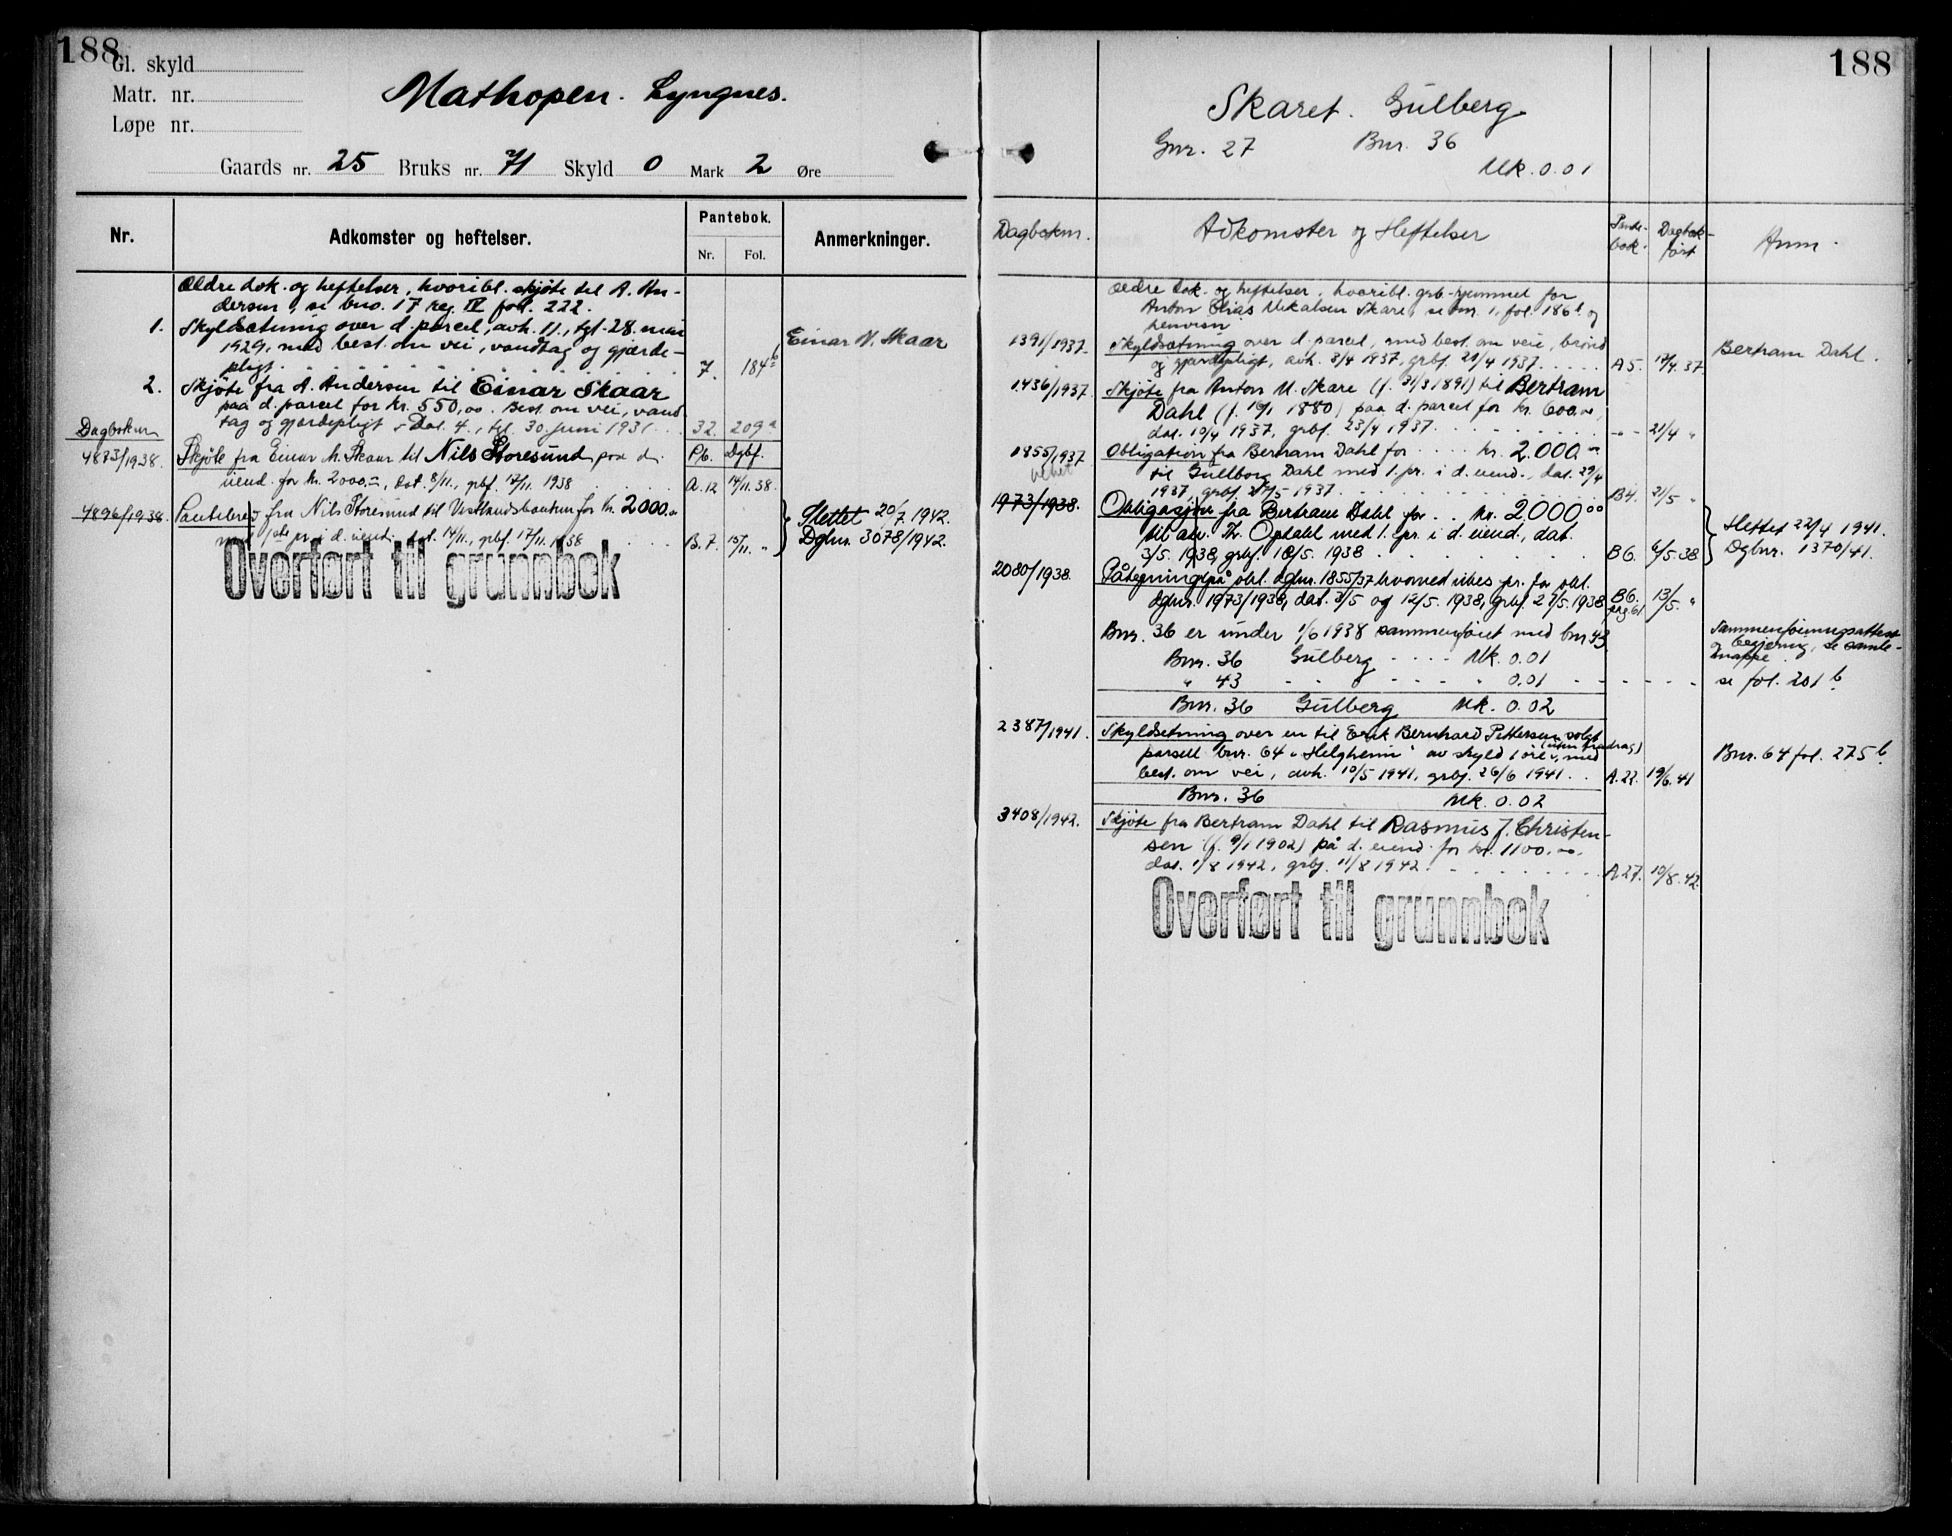 188
Gl. skyld
Matr. nr.
Løpe nr.
Mathopen. Lyngnes.
Gaards nr. 25 Bruks nr. 71 Skyld 0 Mark 2 Øre
Nr.
Adkomster og heftelser.
Pantebok.
Nr. Fol.
Anmerkninger.
Ældre dok. og heftelser, hvoribl. skjøte til A. An-
dersen, se bno. 17 reg. IV fol. 222.
1. Skyldsetning over d. parcel, avh. 11., tgl. 28. mai
1929, med best. om vei, vandtag og gjærde-
pligt. 7. 184 b Einar N. Skaar
2. Skjøte fra A. Andersen til Einar Skaar
paa d. parcel for kr. 550,00. Best. om vei, vand
tag og gjærdepligt. Dat. 4., tgl. 30. juni 1931. 32. 209 a
Dagboknr
4873/1938. Skjøte fra Einar N. Skaar til Nils Storesund paa d. Pb. Dgbf.
eiend. for kr. 2000.-, dat. 8/11., grbf. 17/11. 1938 A. 12 14/11. 38.
4896/1938. Pantebrev fra Nils Storesund til Vestlandsbanken for kr. 2000.-
med 1ste pr. i d. eiend. dat. 14/11., grbf. 17/11. 1938 B. 7. 15/11. "
Slettet 20/7. 1942.
Dgbnr. 3078/1942.
Overført til grunnbok
188
Skaret. Gulberg
Gnr. 27 Bnr. 36
Mk. 0.01
Dagboknr. Adkomster og Heftelser Pante-
bok. Dagbok-
ført Anm.
Ældre dok. og heftelser, hvoribl. grb-hjemmel for
Anton Elias Mikalsen Skare, se bnr. 1, fol. 186 b og
henvisn
1391/1937. Skyldsætning over d. parcel, med best. om veie, brønd
og gjærdepligt, avh. 3/4 1937, grbf. 21/4 1937. A 5. 17/4. 37 Bertram Dahl.
1436/1937. Skjøte fra Anton M. Skare (f. 31/3 1891) til Bertram
Dahl (f. 10/1 1880) paa d. parcel for kr. 600.00
dat. 10/4 1937, grbf. 23/4 1937. - - 21/4 "
1855/1937 Obligation fra Bertram Dahl for kr. 2.000.00
til Gullborg Dahl med 1. pr. i d. eiend., dat. 29/4
1937, grbf. 27/5 1937. B4. 21/5 "
1973/1938. Obligasjon fra Bertram Dahl for kr. 2.000 00
til adv. Th. Opdahl med 1. pr. i d. eiend., dat.
3/5. 1938, grbf. 10/5. 1938 B 6. 6/5. 38
Slettet 22/4 1941.
Dgbnr. 1370/41.
2080/1938. Påtegning på obl. dgbnr. 1855/37 hvorved vikes pr. for obl.
dgbnr. 1973/1938, dat. 3/5 og 12/5. 1938, grbf. 27/5. 1938 B6. pag. 61 13/5. "
Bnr. 36 er under 1/6 1938 sammenføiet med bnr 43
Sammenføiningsattest
og begjæring, se samle-
mappe
Bnr. 36 Gulberg Mk. 0.01
" 43 - - " 0.01 se fol. 201 b
Bnr. 36 Gulberg Mk. 0.02
2387/1941. Skyldsetning over en til Erik Bernhard Pettersen solgt
parsell bnr. 64 "Helgheim" av skyld 1 øre (uten fradrag), med
best. om vei, avh. 10/5 1941, grbf. 26/6 1941. A. 22. 19/6. 41 Bnr. 64 fol. 275 b.
Bnr. 36 Mk. 0.02
3408/1942. Skjøte fra Bertram Dahl til Rasmus J. Christen-
sen (f. 9/1 1902) på d. eiend. for kr. 1100.00,
dat. 1/8 1942, grbf. 11/8 1942. A. 27. 10/8. 42.
Overført til grunnbok